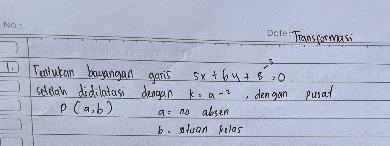 No.:
Date: Transformasi
1. Tentukan bayangan garis 5x + 6y + 8⁻³ = 0
setelah didilatasi dengan k = a⁻², dengan pusat
P (a,b) a = no absen
b = kelas